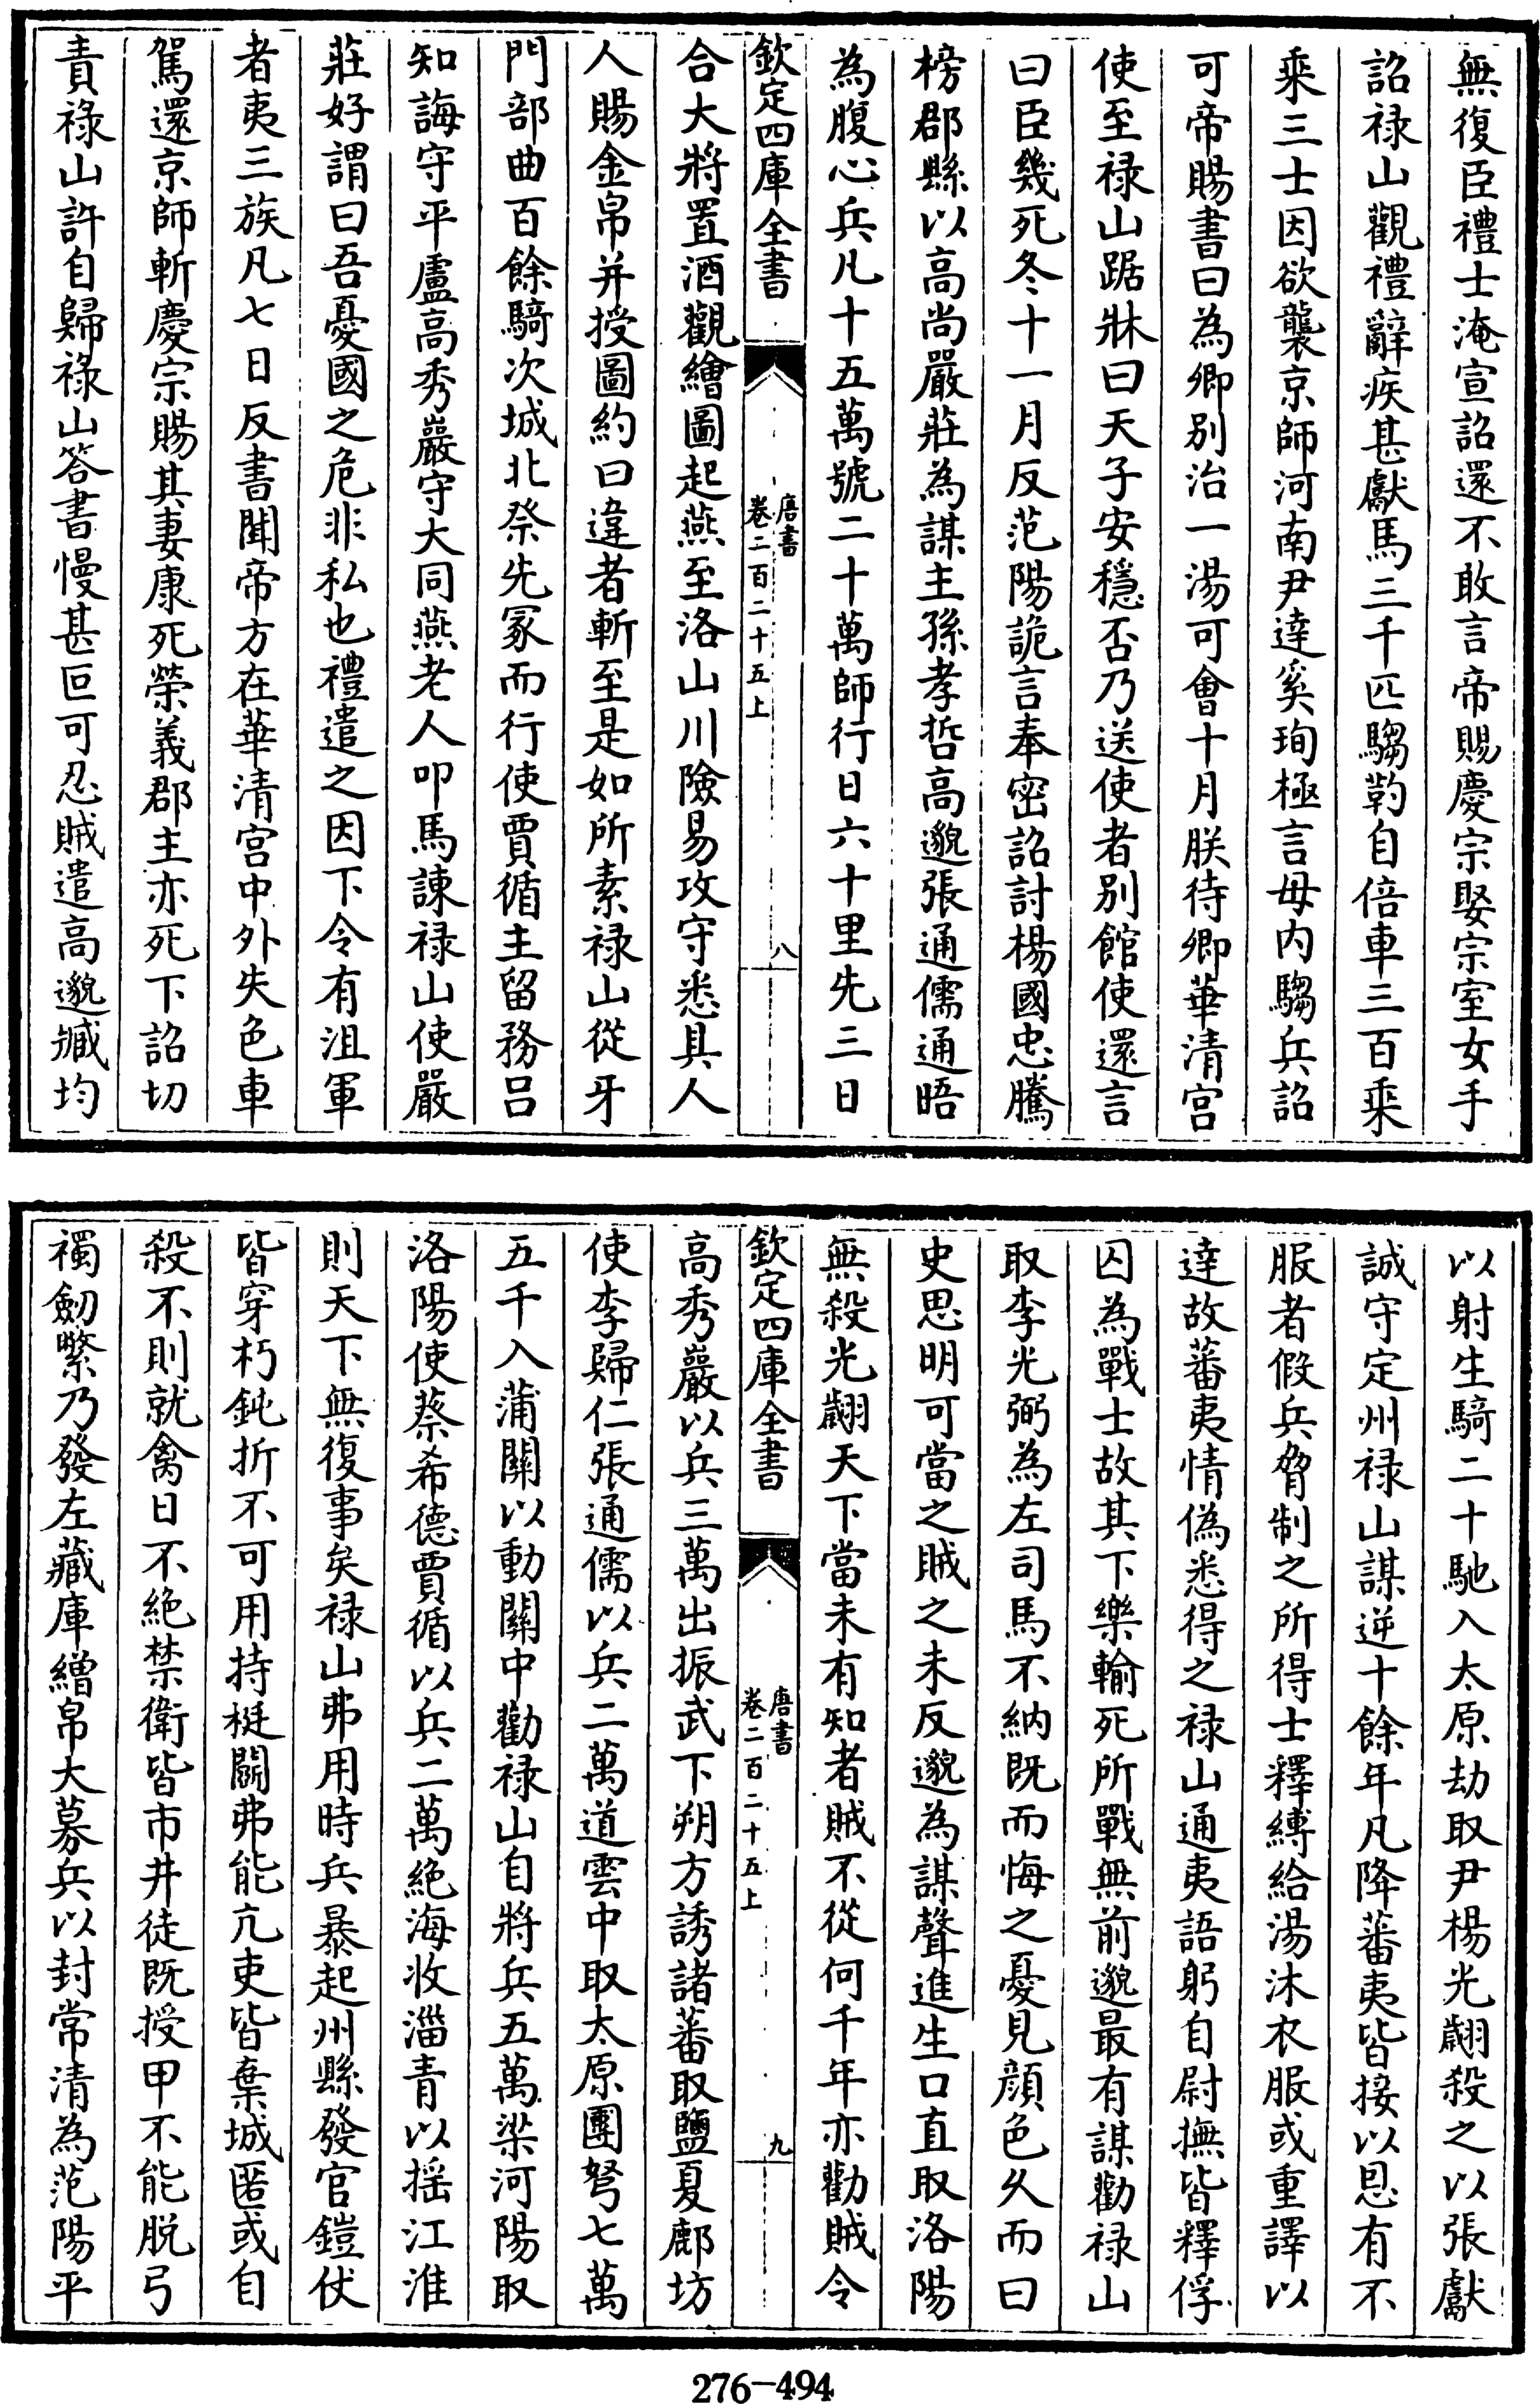 無復臣禮士淹宣詔還不敢言帝賜慶宗娶宗室女手
詔禄山觀禮辭疾甚獻馬三千匹騶靮自倍車三百乘
乘三士因欲襲京師河南尹達奚珣極言毋内騶兵詔
可帝賜書曰為卿别治一湯可會十月朕待卿華清宫
使至禄山踞牀曰天子安穩否乃送使者别館使還言
曰臣幾死冬十一月反范陽詭言奉密詔討楊國忠騰
榜郡縣以高尚嚴莊為謀主孫孝哲高邈張通儒通晤
為腹心兵凡十五萬號二十萬師行日六十里先三日
欽定四庫全書
唐書
卷二百二十五上
八
合大將置酒觀繪圖起燕至洛山川險易攻守悉具人
人賜金帛并授圖約曰違者斬至是如所素禄山從牙
門部曲百餘騎次城北祭先冢而行使賈循主留務呂
知誨守平盧高秀巖守大同燕老人叩馬諫禄山使嚴
莊好謂曰吾憂國之危非私也禮遣之因下令有沮軍
者夷三族凡七日反書聞帝方在華清宫中外失色車
駕還京師斬慶宗賜其妻康死榮義郡主亦死下詔切
責禄山許自歸禄山答書慢甚叵可忍賊遣高邈臧均
以射生騎二十馳入太原劫取尹楊光翽殺之以張獻
誠守定州禄山謀逆十餘年凡降蕃夷皆接以恩有不
服者假兵脅制之所得士釋縛給湯沐衣服或重譯以
達故蕃夷情偽悉得之禄山通夷語躬自尉撫皆釋俘
囚為戰士故其下樂輸死所戰無前邈最有謀勸禄山
取李光弼為左司馬不納既而悔之憂見顔色久而曰
史思明可當之賊之未反邈為謀聲進生口直取洛陽
無殺光翽天下當未有知者賊不從何千年亦勸賊令
欽定四庫全書
唐書
卷二百二十五上
九
高秀巖以兵三萬出振武下朔方誘諸蕃取鹽夏鄜坊
使李歸仁張通儒以兵二萬道雲中取太原團弩七萬
五千入蒲關以動關中勸禄山自將兵五萬梁河陽取
洛陽使蔡希德賈循以兵二萬絶海收淄青以摇江淮
則天下無復事矣禄山弗用時兵暴起州縣發官鎧仗
皆穿朽鈍折不可用持梃鬬弗能亢吏皆棄城匿或自
殺不則就禽日不絶禁衛皆市井徒既授甲不能脱弓
襡劒繁乃發左藏庫繒帛大募兵以封常清為范陽平
276-494